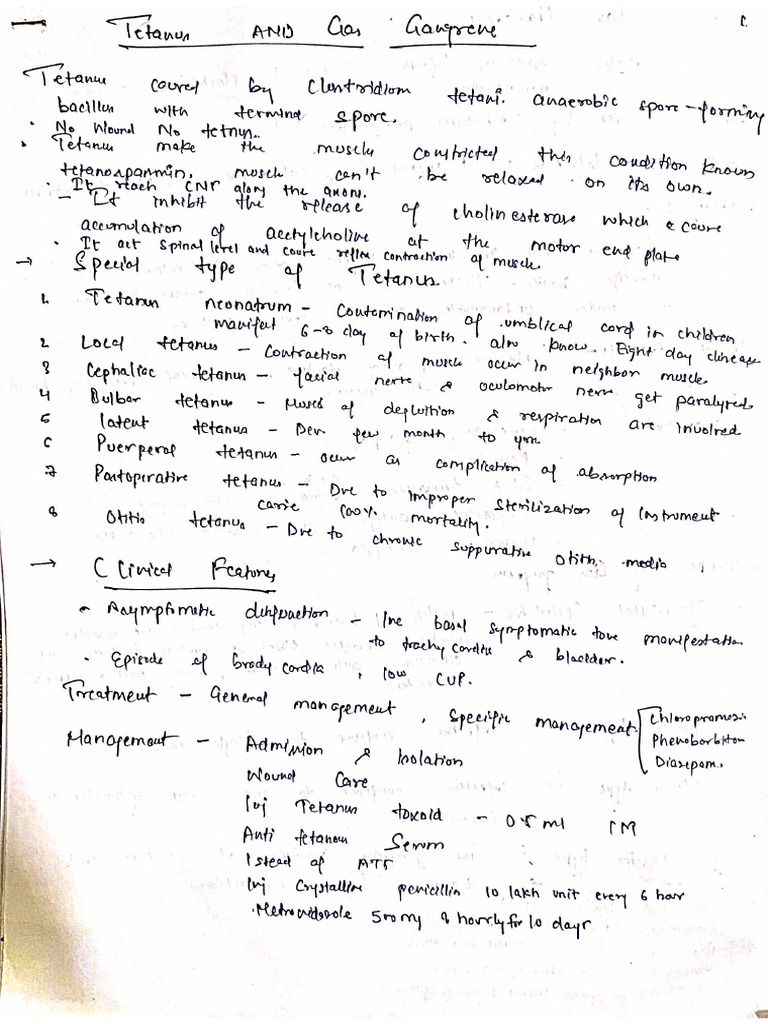 Tetanus AND Gas Gangrene
Tetanus caused by Clostridiom tetani. anaerobic spore-forming
bacillus with terminal spore.
· No Wound No tetnus.
· Tetanus make the muscle constricted this condition known
tetanospasmin, muscle can't be relaxed on its own.
· It reach CNS along the axons.
- It inhibit the release of cholinesterase which cause
accumulation of acetylcholine at the motor end plate
· It act spinal level and cause reflex contraction of muscle
→ Special type of Tetanus
1. Tetanus neonatrum - Contamination of umblical cord in children
manifest 6-8 day of birth. also know. Eight day disease
2 Local tetanus - Contraction of muscle occur in neighbor muscle
3 Cephalic tetanus - facial nerve & oculomotor nerve get paralyzed
4 Bulbar tetanus - Muscs of depluthion & respiration are involved
5 latent tetanus - Dev few month to year
6 Puerperal tetanus - occur as complication of absorption
7 Postoperative tetanus - Due to improper sterilization of Instrument
carrie 100% mortality.
8 Otitis tetanus - Due to chronic suppurative Otitis media
→ Clinical Features
· Asymptomatic - Inc basal symptomatic tone manifestation
to trachy cardia & bladder.
· Episode of brady cardia, low CVP.
Treatment - General management, Specific management
Chloropromazi
Phenobarbiton
Diazepam.
Management - Admission & Isolation
Wound Care
Inj Tetanus toxoid - 0.5 ml IM
Anti tetanous Serum
Istead of ATS
Inj Crystalline penicillin 10 lakh unit every 6 hour
·Metronidazole 500 mg 8 hourly for 10 days